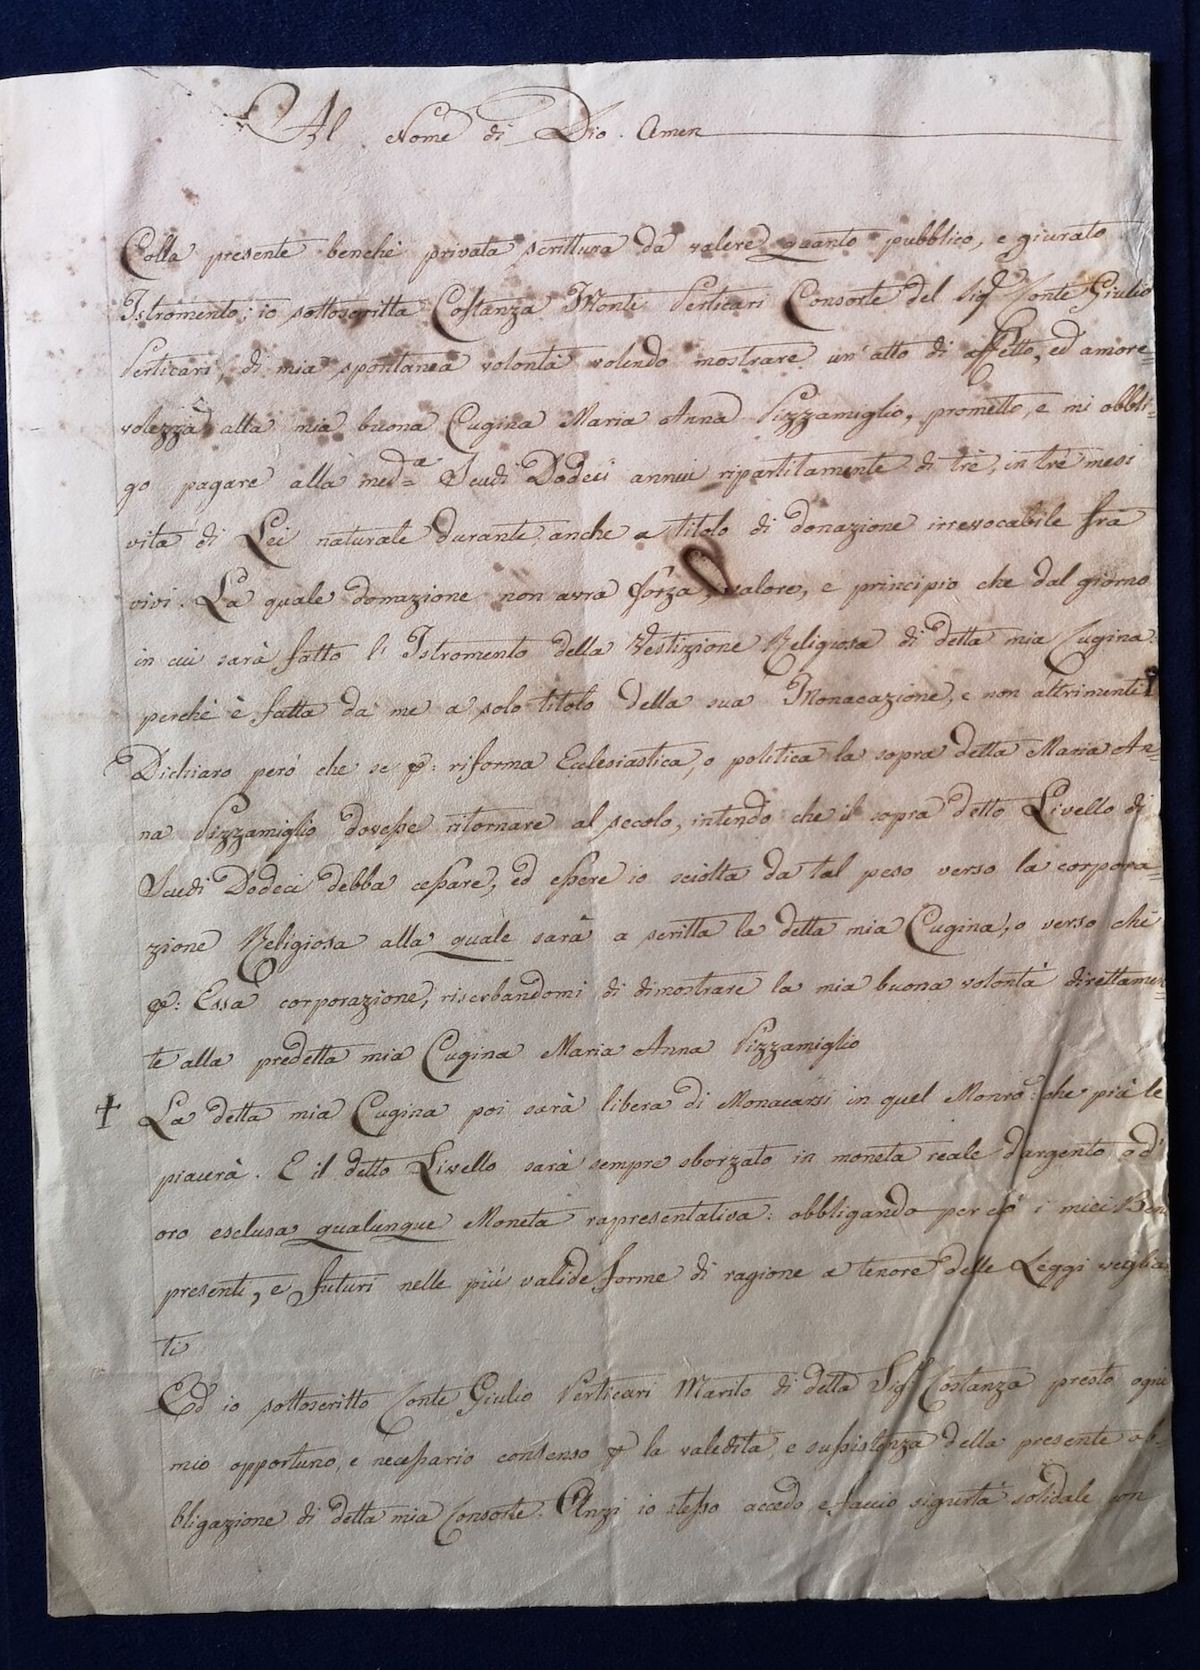 Al Nome di Dio. Amen
Colla presente benchè privata scrittura da valere quanto pubblico, e giurato
Istromento; io sottoscritta Costanza Monti Perticari Consorte del Sig.r Conte Giulio
Perticari, di mia spontanea volontà volendo mostrare un'atto di affetto, ed amore=
volezza alla mia buona Cugina Maria Anna Pizzamiglio, prometto, e mi obbli=
go pagare alla med.a Scudi Dodeci annui ripartitamente di trè, in trè mesi
vita di Lei naturale durante, anche a titolo di donazione irrevocabile frà
vivi. La quale donnazione non avra forza, valore, e principio che dal giorno
in cui sarà fatto l'Istromento della Vestizione Religiosa di detta mia Cugina
perchè è fatta da me a solo titolo della sua Monacazione, e non altrimenti
Dichiaro però che se p: riforma Ecclesiastica, o politica la sopra detta Maria An=
na Pizzamiglio dovesse ritornare al secolo, intendo che il sopra detto Livello di
Scudi Dodeci debba cessare, ed essere io sciolta da tal peso verso la corpora=
zione Religiosa alla quale sarà a scritta la detta mia Cugina, o verso chi
p: Essa corporazione, riserbandomi di dimostrare la mia buona volontà direttamen=
te alla predetta mia Cugina Maria Anna Pizzamiglio
+ La detta mia Cugina poi sarà libera di Monacarsi in quel Monro: che più le
piacerà. E il detto Livello sarà sempre sborzato in moneta reale d'argento, od'
oro esclusa qualunque Moneta rapresentativa: obbligando per ciò i miei Beni
presenti, e futuri nelle più valide forme di ragione a tenore delle Leggi veglian
ti
Ed io sottoscritto Conte Giulio Perticari Marito di detta Sig.a Costanza presto ogni
mio opportuno, e necessario consenso p la validità, e sussistenza della presente ob=
bligazione di detta mia Consorte. Anzi io stesso accedo e faccio sigurtà solidale con